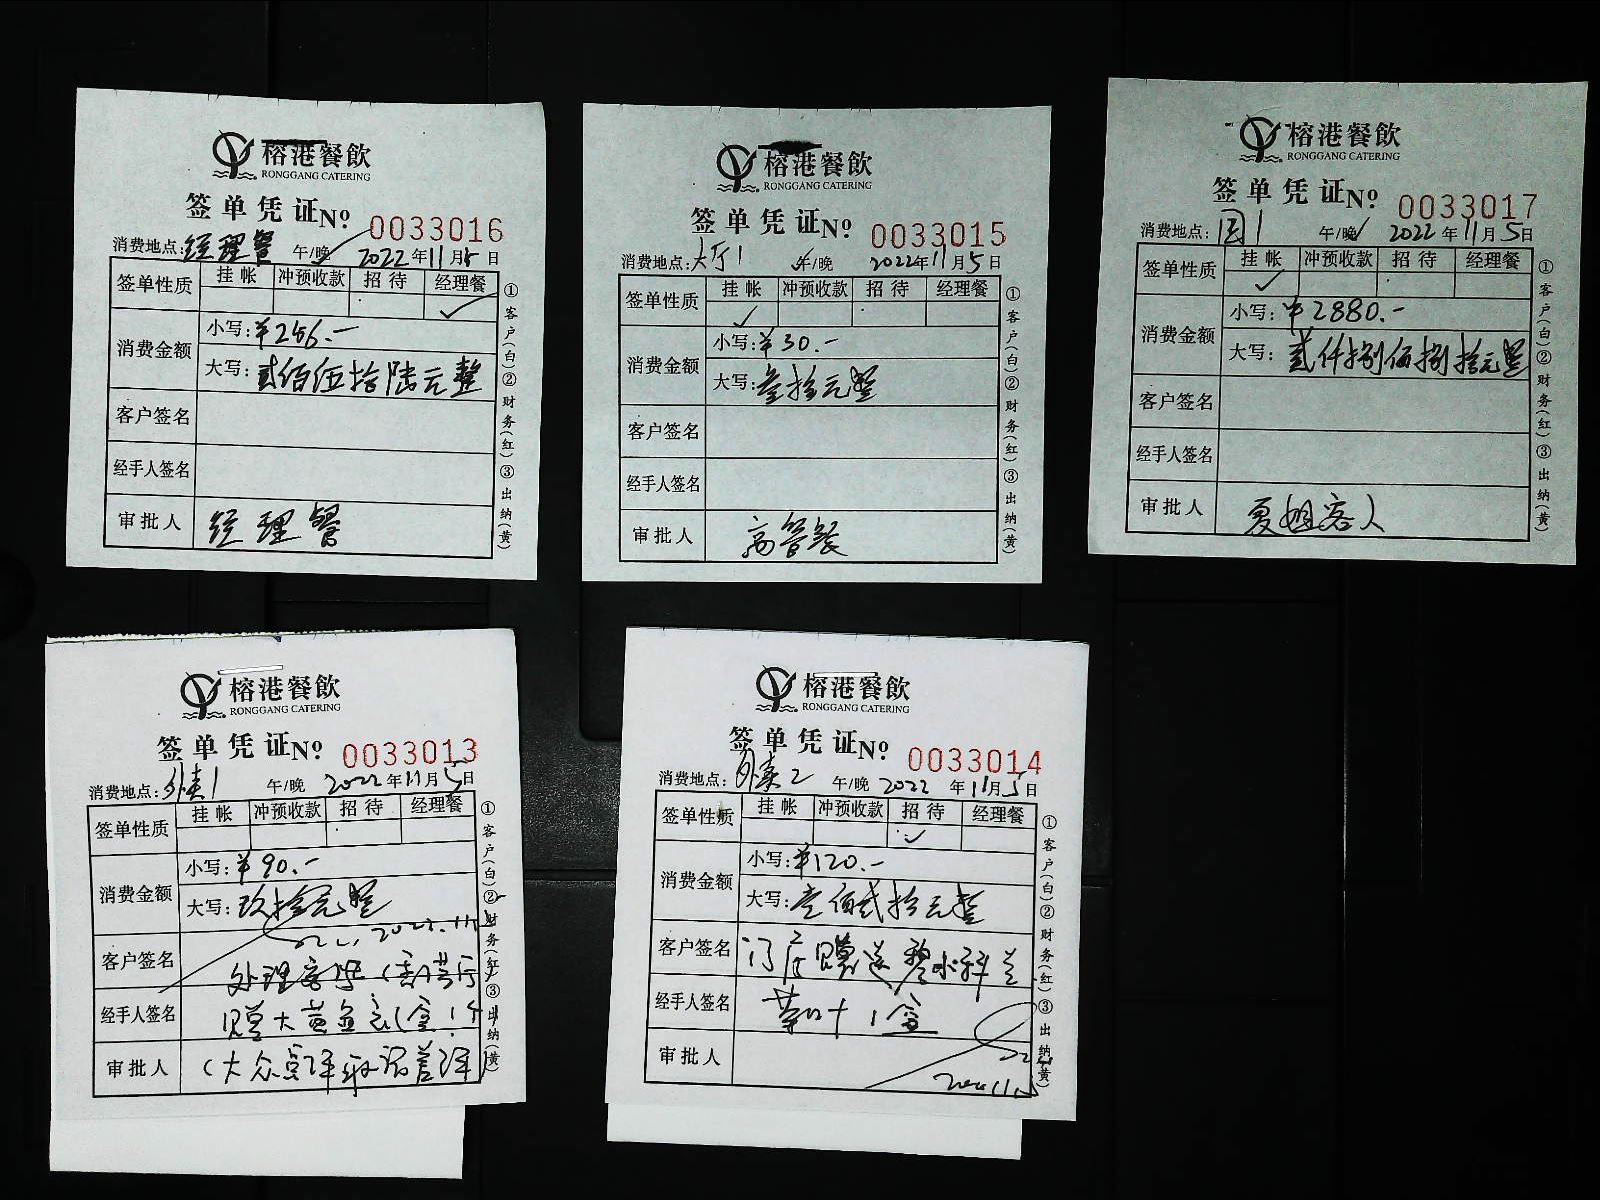 榕港餐飲
RONGGANG CATERING
签单凭证No 0033016
消费地点:经理餐 午/晚 2022年11月5日
签单性质 挂帐 冲预收款 招待 经理餐
✓
消费金额 小写:¥256.-
大写:贰佰伍拾陆元整
客户签名
经手人签名
审批人 经理餐
①客户(白)②财务(红)③出纳(黄)
榕港餐飲
RONGGANG CATERING
签单凭证No 0033015
消费地点:大厅1 午/晚 2022年11月5日
签单性质 挂帐 冲预收款 招待 经理餐
✓
消费金额 小写:¥30.-
大写:叁拾元整
客户签名
经手人签名
审批人 高管餐
①客户(白)②财务(红)③出纳(黄)
榕港餐飲
RONGGANG CATERING
签单凭证No 0033017
消费地点: 1 午/晚 2022年11月5日
签单性质 挂帐 冲预收款 招待 经理餐
✓
消费金额 小写:¥2880.-
大写:贰仟捌佰捌拾元整
客户签名
经手人签名
审批人 夏姐客人
①客户(白)②财务(红)③出纳(黄)
榕港餐飲
RONGGANG CATERING
签单凭证No 0033013
消费地点:外卖1 午/晚 2022年11月5日
签单性质 挂帐 冲预收款 招待 经理餐
消费金额 小写:¥90.-
大写:玖拾元整
客户签名 处理客
经手人签名 赠大黄鱼礼盒1个
审批人 (大众点评 差评)
①客户(白)②财务(红)③出纳(黄)
榕港餐飲
RONGGANG CATERING
签单凭证No 0033014
消费地点:外卖2 午/晚 2022年11月5日
签单性质 挂帐 冲预收款 招待 经理餐
✓
消费金额 小写:¥120.-
大写:壹佰贰拾元整
客户签名 门店赠送
经手人签名 1盒
审批人
①客户(白)②财务(红)③出纳(黄)